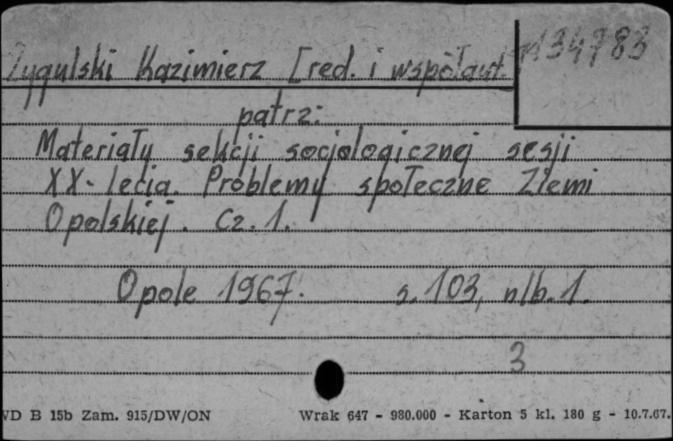 Żygulski Kazimierz [red. i współaut.]
134783
patrz:
Materiały sekcji socjologicznej sesji
XX-lecia. Problemy społeczne Ziemi
Opolskiej. Cz. 1.
Opole 1967. s. 103, nlb. 1.
3
WD B 15b Zam. 915/DW/ON Wrak 647 - 980.000 - Karton 5 kl. 180 g - 10.7.67.